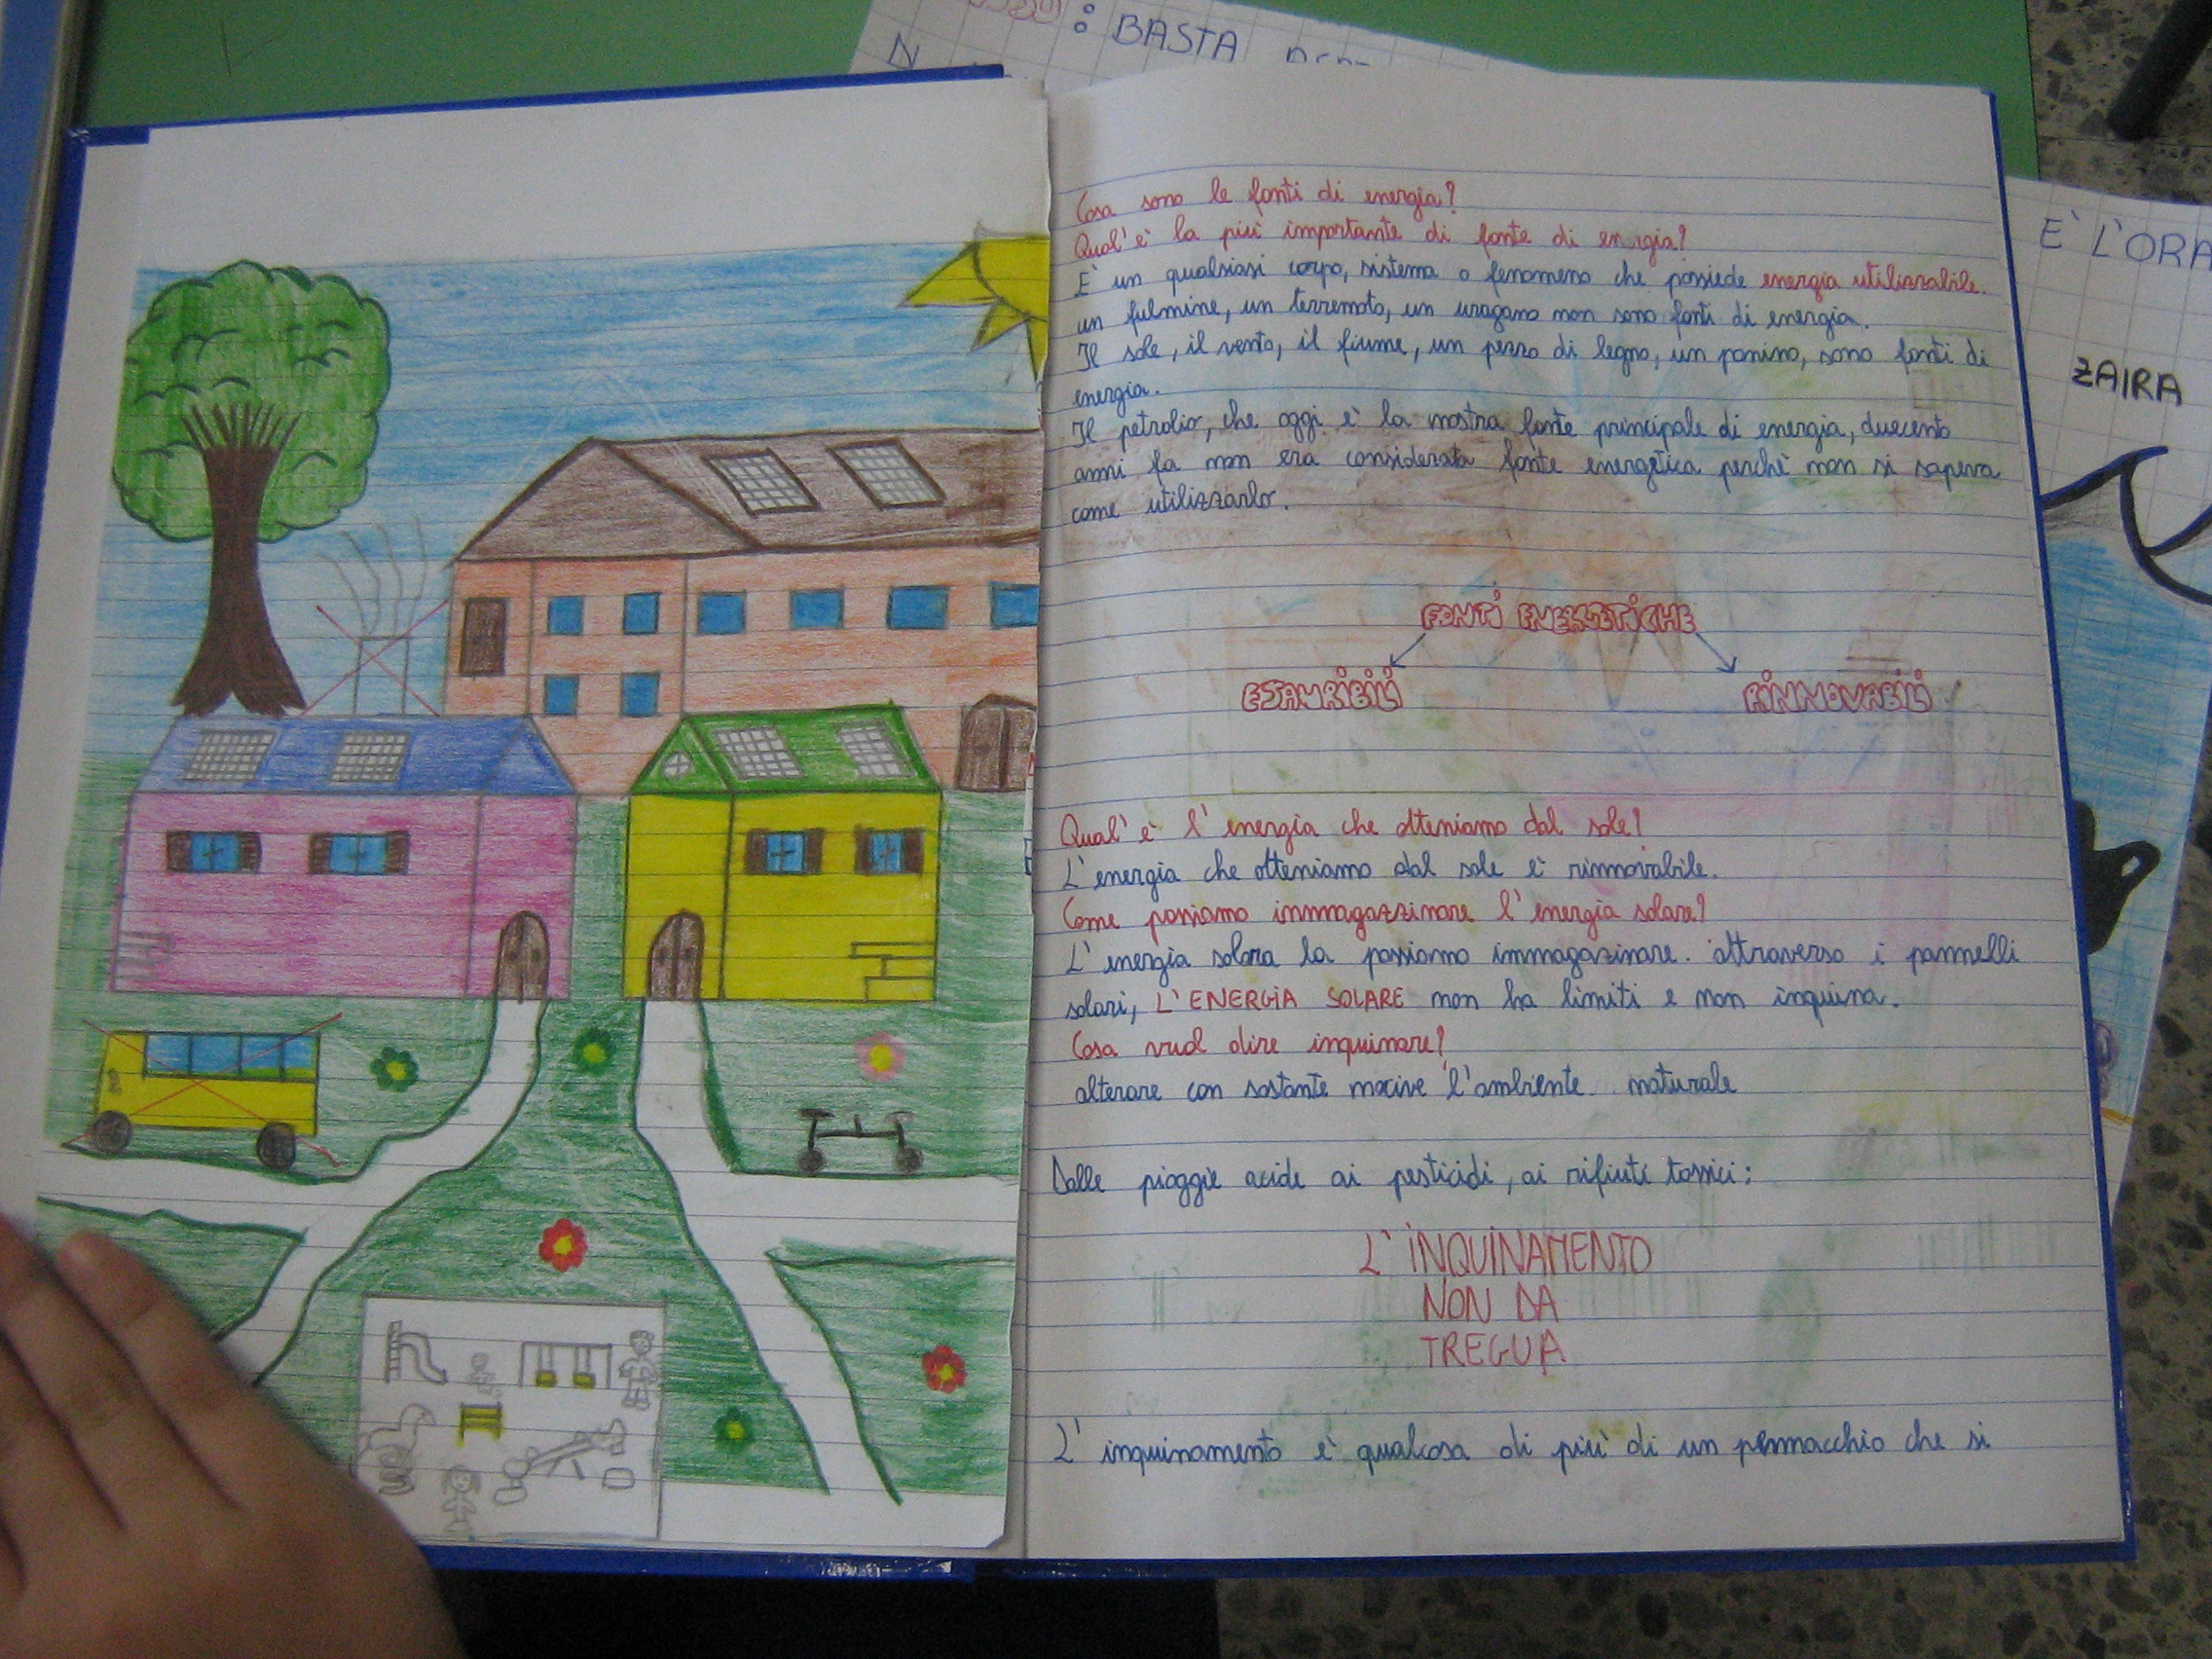 : BASTA
N
E' L'ORA
ZAIRA
Cosa sono le fonti di energia?
Qual'è la più importante di fonte di energia?
È un qualsiasi corpo, sistema o fenomeno che possiede energia utilizzabile.
un fulmine, un terremoto, un uragano non sono fonti di energia.
Il sole, il vento, il fiume, un pezzo di legno, un panino, sono fonti di
energia.
Il petrolio, che oggi è la nostra fonte principale di energia, duecento
anni fa non era considerata fonte energetica perchè non si sapeva
come utilizzarlo.
FONTI ENERGETICHE
ESAURIBILI RINNOVABILI
Qual'è l'energia che otteniamo dal sole?
L'energia che otteniamo dal sole è rinnovabile.
Come possiamo immagazzinare l'energia solare?
L'energia solara la possiamo immagazinare. attraverso i pannelli
solari, L'ENERGIA SOLARE non ha limiti e non inquina.
Cosa vuol dire inquinare?
alterare con sostante nocive l'ambiente naturale
Dalle pioggie acide ai pesticidi, ai rifiuti tossici:
L'INQUINAMENTO
NON DA
TREGUA
L'inquinamento è qualcosa di più di un pennacchio che si